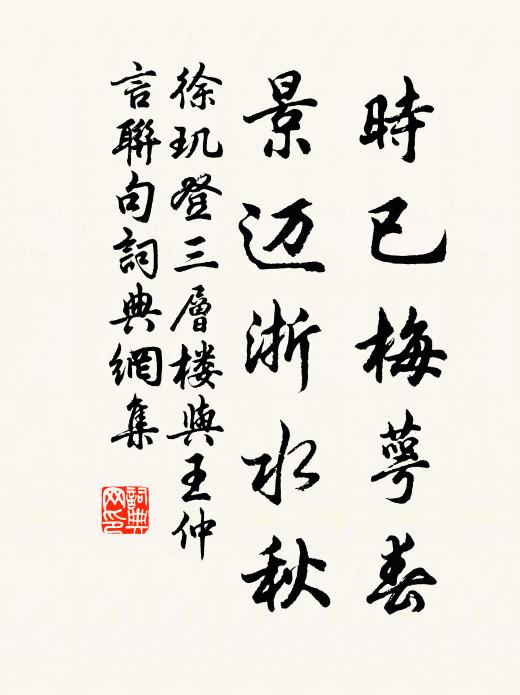 時已梅萼春
景迈浙水秋
徐玑登三層楼與王仲
言聯句詞典網集
詞典网印